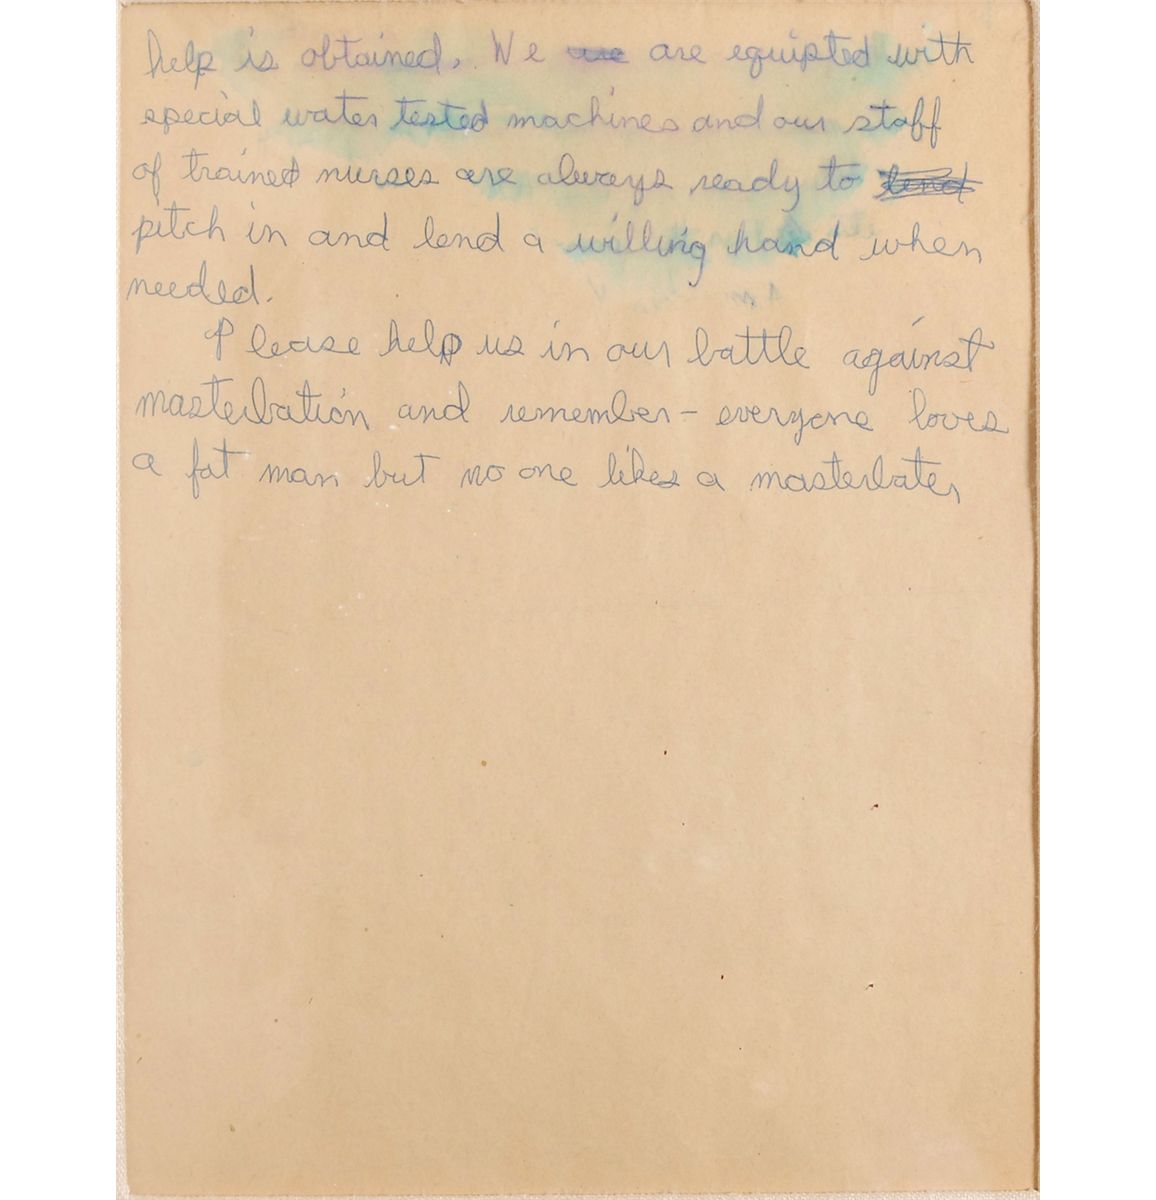 help is obtained. We are equipted with
special water tested machines and our staff
of trained nurses are always ready to lend
pitch in and lend a willing hand when
needed.
Please help us in our battle against
masterbation and remember - everyone loves
a fat man but no one likes a masterbater